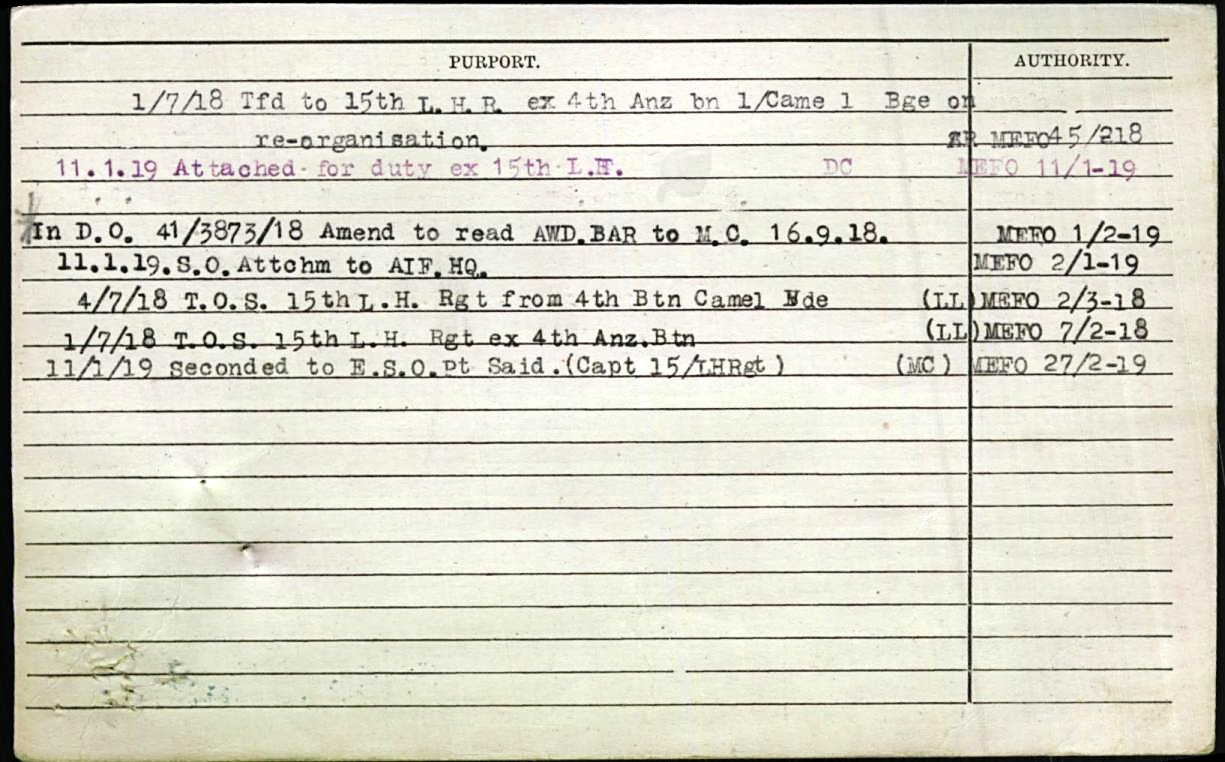 PURPORT. AUTHORITY.
1/7/18 Tfd to 15th L.H.R. ex 4th Anz bn 1/Came l Bge on
re-organisation. AR MEFO45/218
11.1.19 Attached for duty ex 15th L.H. DC MEFO 11/1-19
In D.O. 41/3873/18 Amend to read AWD.BAR to M.C. 16.9.18. MEFO 1/2-19
11.1.19.S.O.Attchm to AIF.HQ. MEFO 2/1-19
4/7/18 T.O.S. 15th L.H. Rgt from 4th Btn Camel Bde (LL)MEFO 2/3-18
1/7/18 T.O.S. 15th L.H. Rgt ex 4th Anz.Btn (LL)MEFO 7/2-18
11/1/19 seconded to E.S.O.Pt Said.(Capt 15/LHRgt ) (MC) MEFO 27/2-19